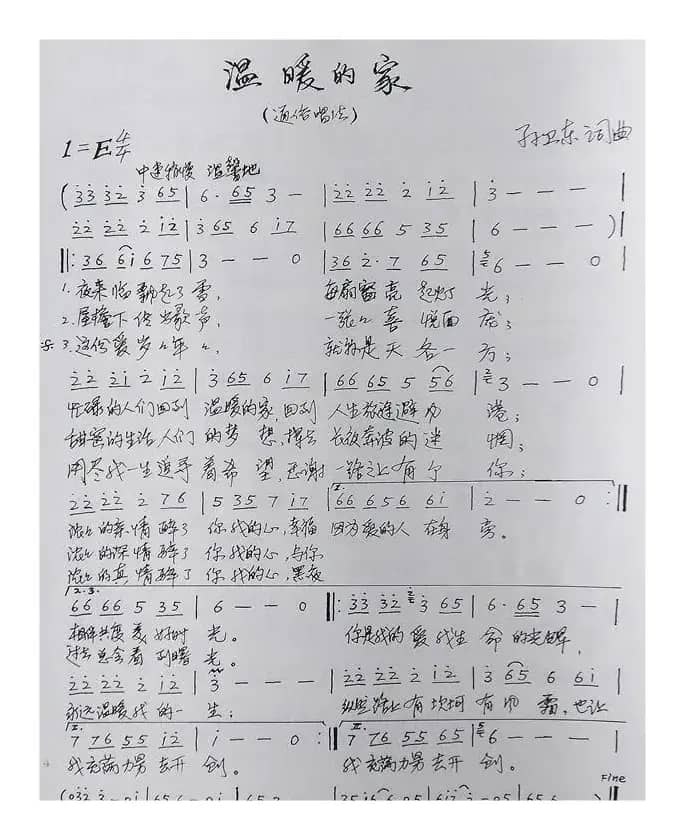 温暖的家
(通俗唱法)
1=E 4/4
孙卫东词曲
中速稍慢 温馨地
(33 32 3 65 | 6· 65 3 — | 22 22 2 12 | 3 — — — |
22 22 2 12 | 3 65 6 17 | 66 66 5 35 | 6 — — — )|
‖: 36 61 6 75 | 3 — — 0 | 36 2· 7 65 | 6 — — 0 |
1. 夜来临 起了雪, 每扇窗亮起灯光;
2. 屋檐下传出歌声, 一张张喜悦面庞;
3. 这份爱岁岁年年, 就算是天各一方;
22 21 2 12 | 3 65 6 17 | 66 65 5 56 | 3 — — 0 |
忙碌的人们回到 温暖的家,回到 人生旅途避风 港;
甜蜜的生活人们 的梦 想, 长夜奔波的迷 惘;
用尽我一生追寻 着希 望,感谢 一路之上有个 你;
22 22 2 76 | 5 35 7 17 | 1. 66 65 6 61 | 2 — — 0 :‖
浓浓的亲情醉了 你我的心,幸福 因为爱的人 在身 旁。
浓浓的深情醉了 你我的心,与你
浓浓的真情醉了 你我的心,黑夜
2.3.
66 66 5 35 | 6 — — 0 ‖: 33 32 3 65 | 6· 65 3 — |
相伴共度美好时 光。 你是我的爱我生 命的光辉,
过去总会看到曙 光。
22 22 2 12 | 3 — — — | 22 22 2 12 | 3 65 6 61 |
永远温暖我的一 生; 纵然路上有坎坷 有风 霜,也让
I. 7 76 55 12 | 1 — — 0 :‖ II. 7 76 55 65 | 6 — — 0 |
我充满力量去开 创。 我充满力量去开 创。
Fine